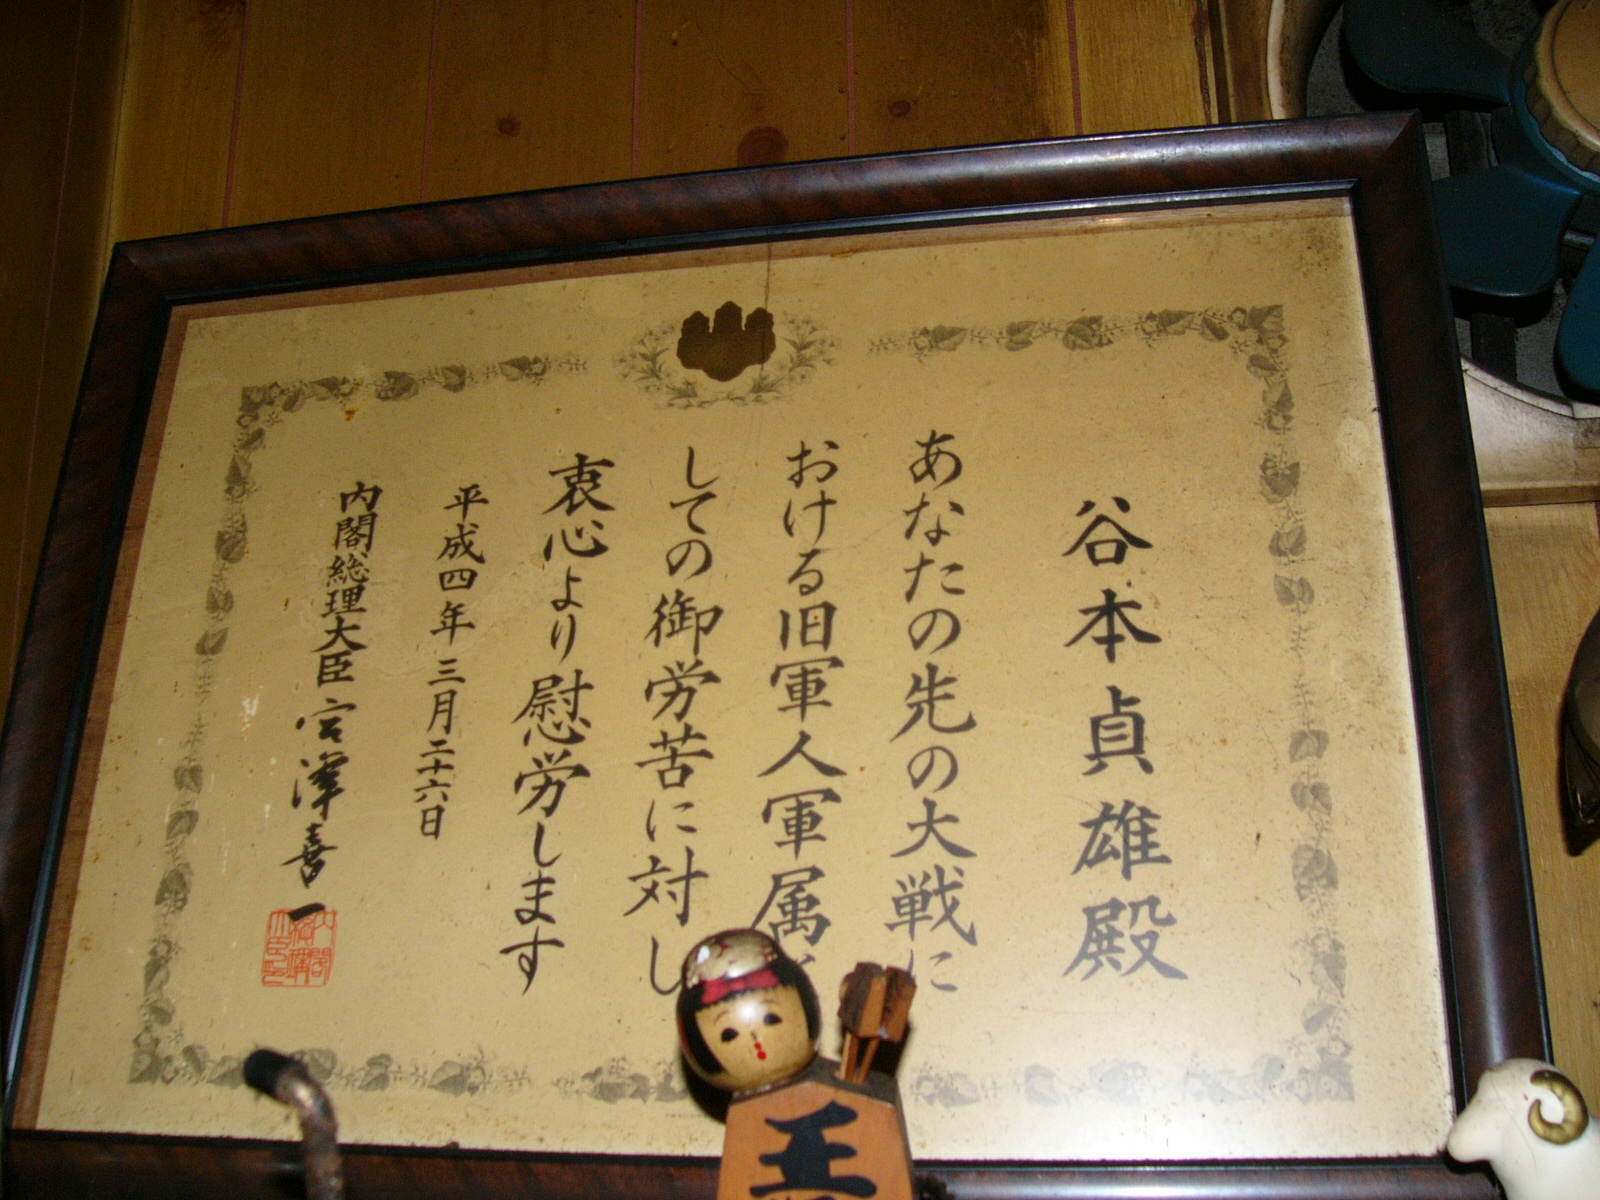 谷本貞雄殿
あなたの先の大戦に
おける旧軍人軍属
しての御労苦に対し
衷心より慰労します
平成四年三月二十六日
内閣総理大臣 宮澤喜一
王